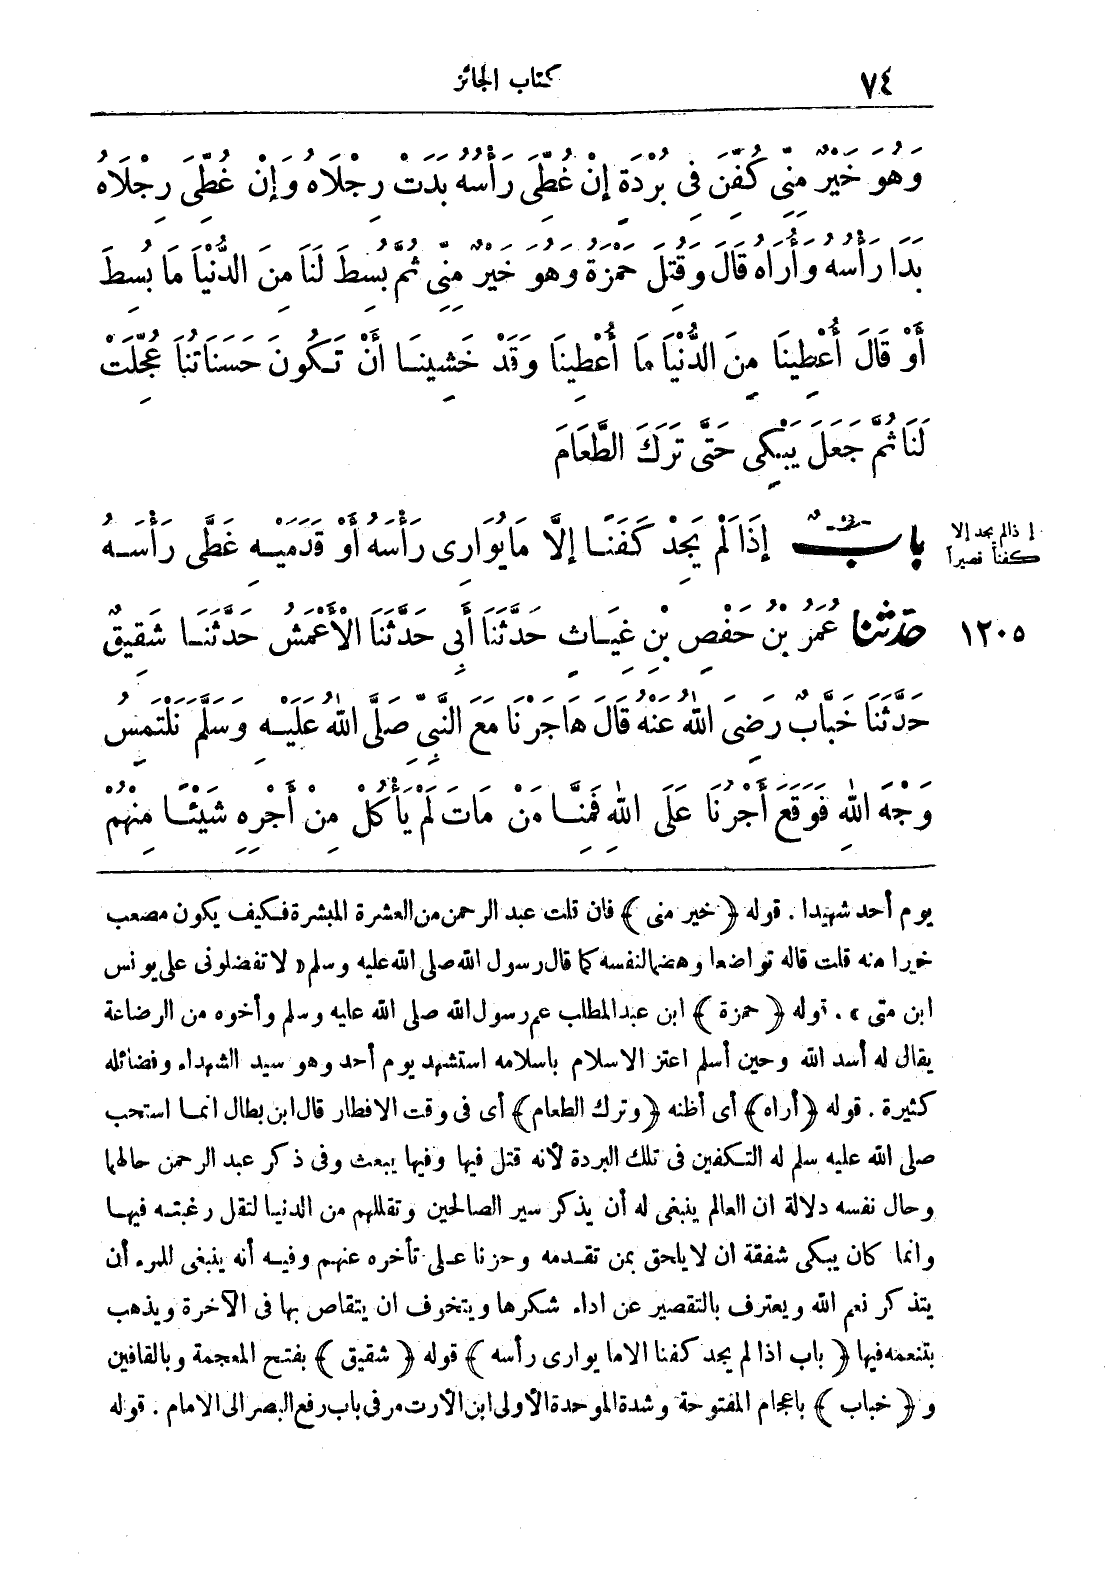 ٧٤
كتاب الجنائز
وَهُوَ خَيْرٌ مِنِّي كُفِّنَ فِي بُرْدَةٍ إِنْ غُطِّيَ رَأْسُهُ بَدَتْ رِجْلَاهُ وَإِنْ غُطِّيَ رِجْلَاهُ
بَدَا رَأْسُهُ وَأُرَاهُ قَالَ وَقُتِلَ حَمْزَةُ وَهُوَ خَيْرٌ مِنِّي ثُمَّ بُسِطَ لَنَا مِنَ الدُّنْيَا مَا بُسِطَ
أَوْ قَالَ أُعْطِينَا مِنَ الدُّنْيَا مَا أُعْطِينَا وَقَدْ خَشِينَا أَنْ تَكُونَ حَسَنَاتُنَا عُجِّلَتْ
لَنَا ثُمَّ جَعَلَ يَبْكِي حَتَّى تَرَكَ الطَّعَامَ
بابٌ إِذَا لَمْ يَجِدْ كَفَنًا إِلَّا مَا يُوَارِي رَأْسَهُ أَوْ قَدَمَيْهِ غَطَّى رَأْسَهُ
إذا لم يجد إلا
كفناً قصيراً
١٢٠٥
حَدَّثَنَا عُمَرُ بْنُ حَفْصِ بْنِ غِيَاثٍ حَدَّثَنَا أَبِي حَدَّثَنَا الْأَعْمَشُ حَدَّثَنَا شَقِيقٌ
حَدَّثَنَا خَبَّابٌ رَضِيَ اللهُ عَنْهُ قَالَ هَاجَرْنَا مَعَ النَّبِيِّ صَلَّى اللهُ عَلَيْهِ وَسَلَّمَ نَلْتَمِسُ
وَجْهَ اللهِ فَوَقَعَ أَجْرُنَا عَلَى اللهِ فَمِنَّا مَنْ مَاتَ لَمْ يَأْكُلْ مِنْ أَجْرِهِ شَيْئًا مِنْهُمْ
يوم أحد شهيدا . قوله ﴿خير منى﴾ فان قلت عبد الرحمن من العشرة المبشرة فكيف يكون مصعب
خيرا منه قلت قاله تواضعا وهضما لنفسه كما قال رسول الله صلى الله عليه وسلم «لا تفضلونى على يونس
ابن متى» . قوله ﴿حمزة﴾ ابن عبد المطلب عم رسول الله صلى الله عليه وسلم وأخوه من الرضاعة
يقال له أسد الله وحين أسلم اعتز الاسلام باسلامه استشهد يوم أحد وهو سيد الشهداء وفضائله
كثيرة . قوله ﴿أراه﴾ أى أظنه ﴿وترك الطعام﴾ أى فى وقت الافطار قال ابن بطال انما استحب
صلى الله عليه سلم له التكفين فى تلك البردة لأنه قتل فيها وفيها يبعث وفى ذكر عبد الرحمن حالهما
وحال نفسه دلالة ان العالم ينبغى له أن يذكر سير الصالحين وتقللهم من الدنيا لتقل رغبته فيها
وانما كان يبكى شفقة ان لا يلحق بمن تقدمه وحزنا على تأخره عنهم وفيه أنه ينبغى للمرء أن
يتذكر نعم الله ويعترف بالتقصير عن اداء شكرها ويتخوف ان يتقاص بها فى الآخرة ويذهب
بتنعمه فيها ﴿باب اذا لم يجد كفنا الا ما يوارى رأسه﴾ قوله ﴿شقيق﴾ بفتح المعجمة وبالقافين
و﴿خباب﴾ باعجام المفتوحة وشدة الموحدة الأولى ابن الأرت مر فى باب رفع البصر الى الامام . قوله